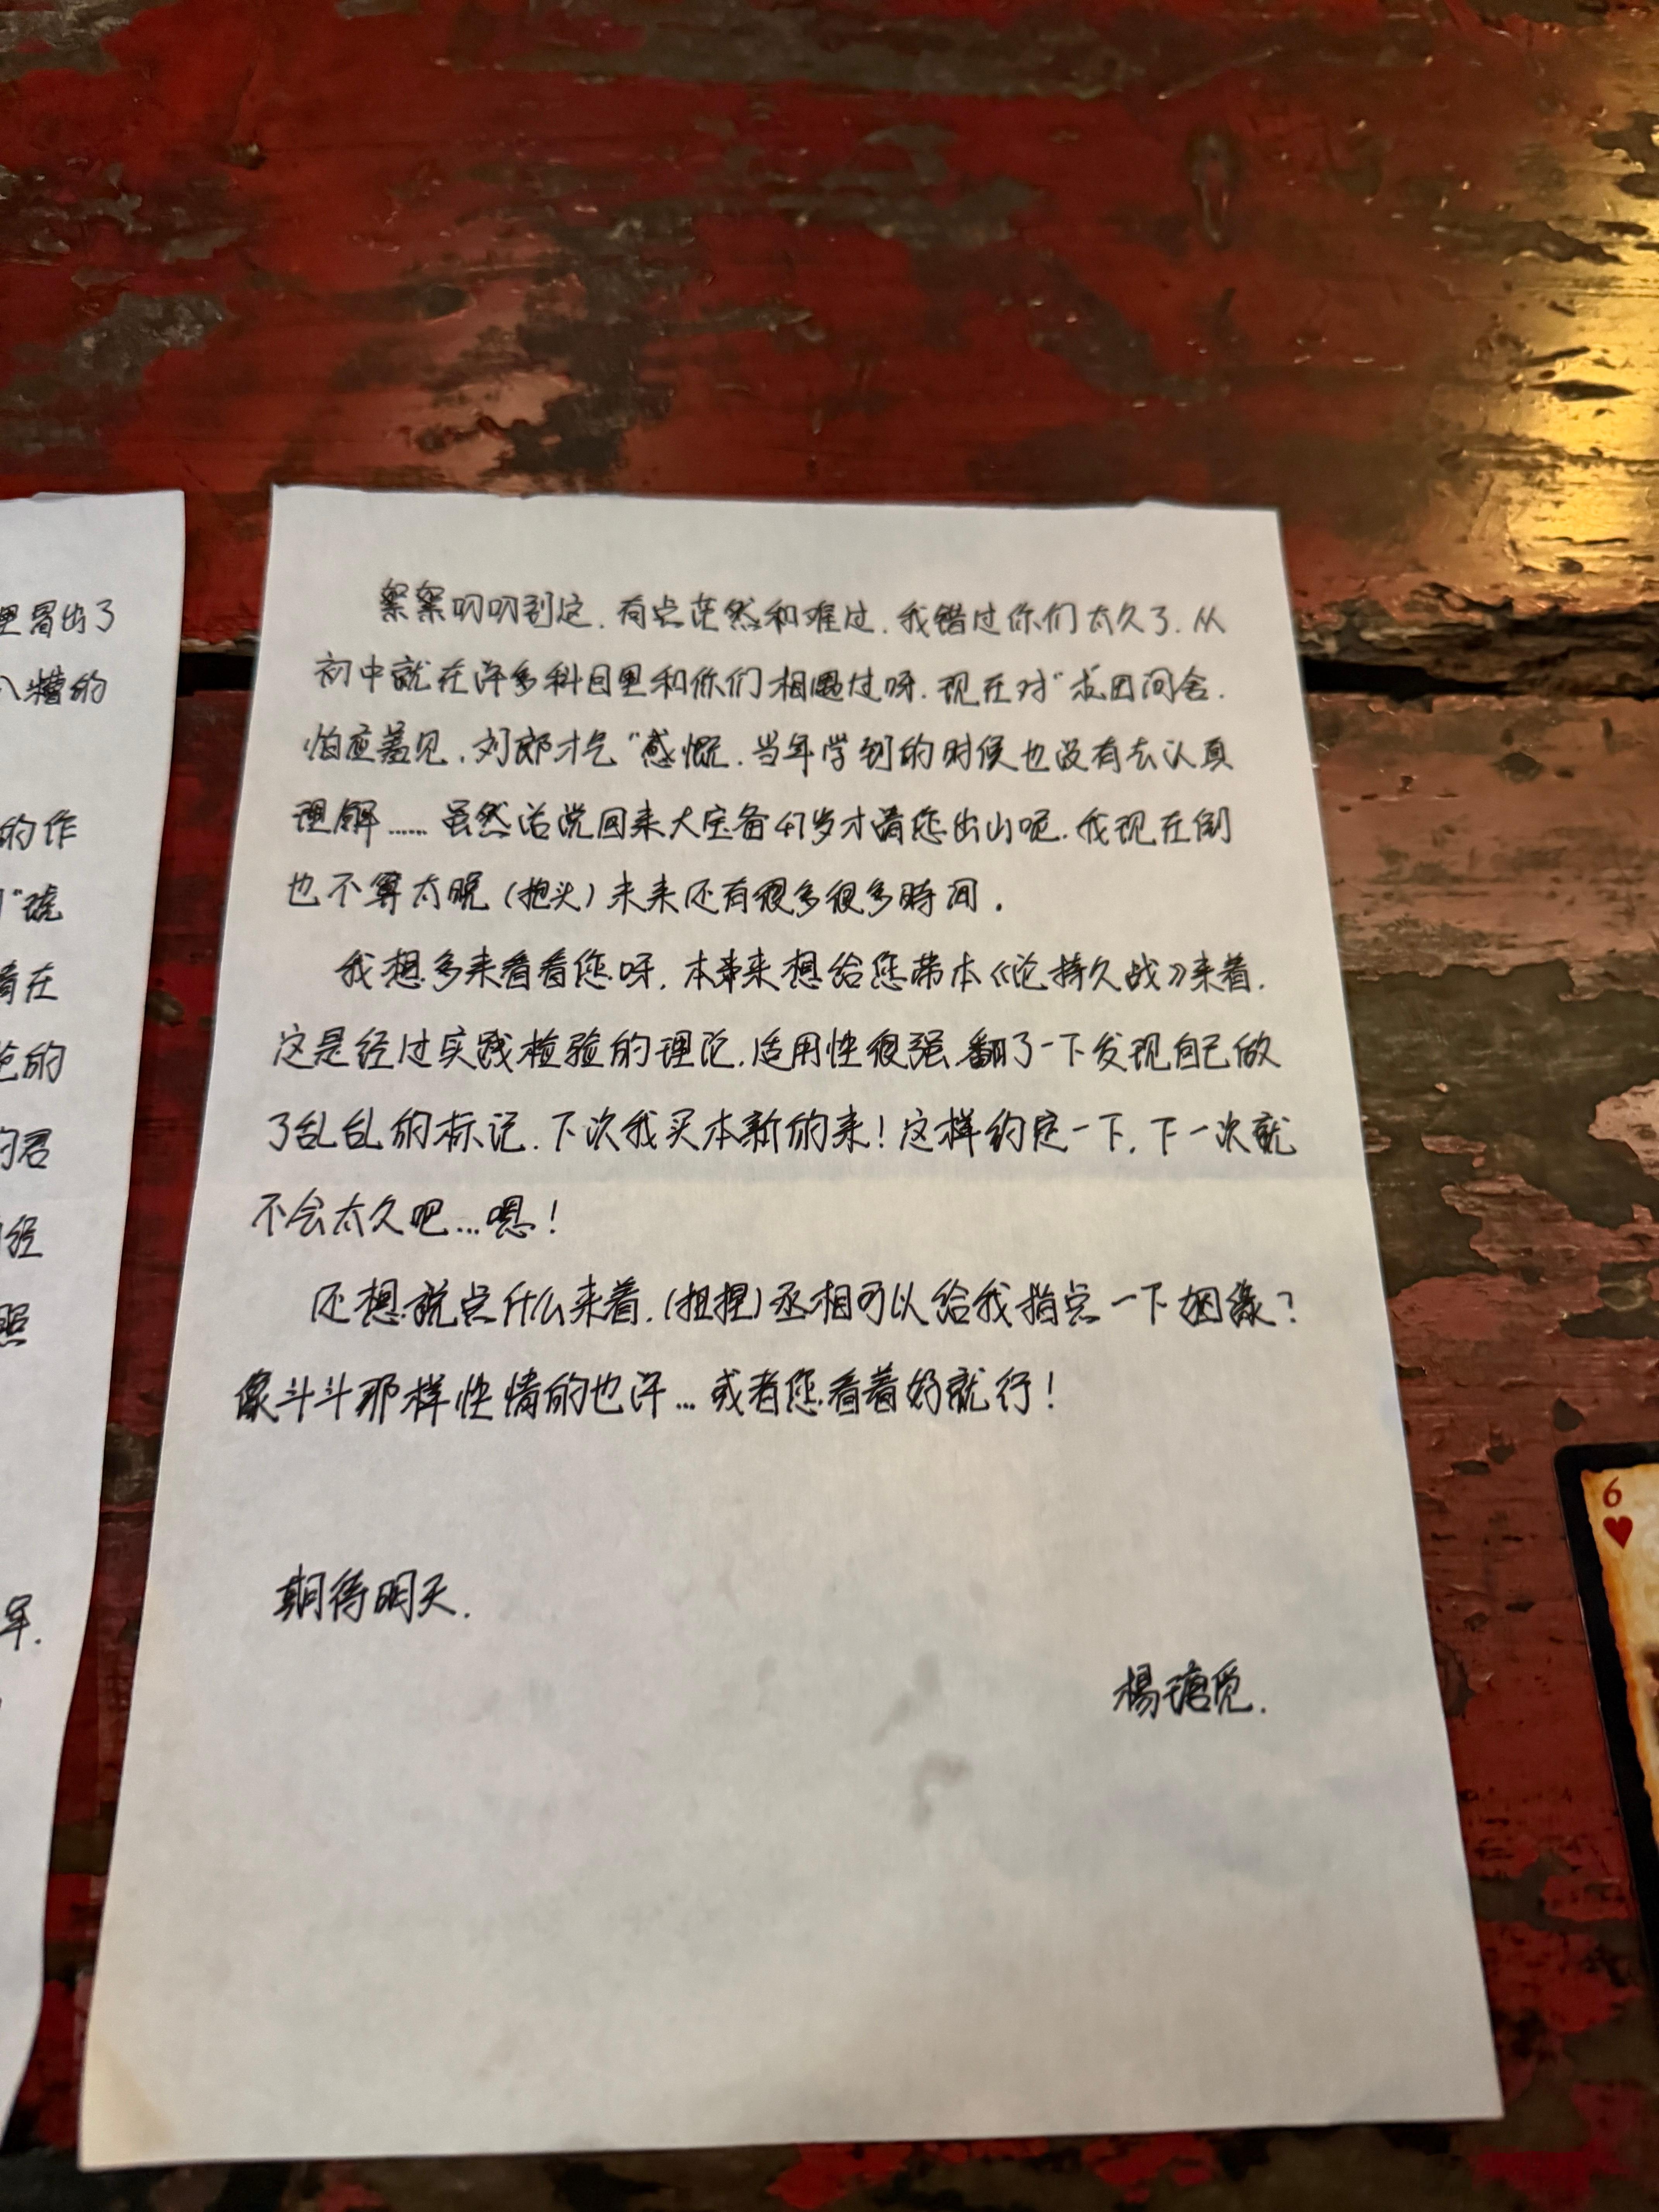 里冒出了
八糟的
的作
着在
的
的君
经
照
年.
絮絮叨叨到这.有点茫然和难过.我错过你们太久了.从
初中就在许多科目里和你们相遇过呀.现在对"求田问舍.
怕应羞见.刘郎才气"感慨.当年学到的时候也没有去认真
理解……虽然话说回来大宝备47岁才请您出山呢.我现在倒
也不算太晚(抱头)未来还有很多很多時间.
我想多来看看您呀.本来想给您带本《论持久战》来着.
这是经过实践检验的理论.适用性很强.翻了一下发现自己做
了乱乱的标记.下次我买本新的来!这样约定一下.下一次就
不会太久吧...嗯!
还想说点什么来着.(扭捏)丞相可以给我指点一下姻缘?
像斗斗那样性情的也许...或者您看着好就行!
期待明天.
楊瑭觅.
6